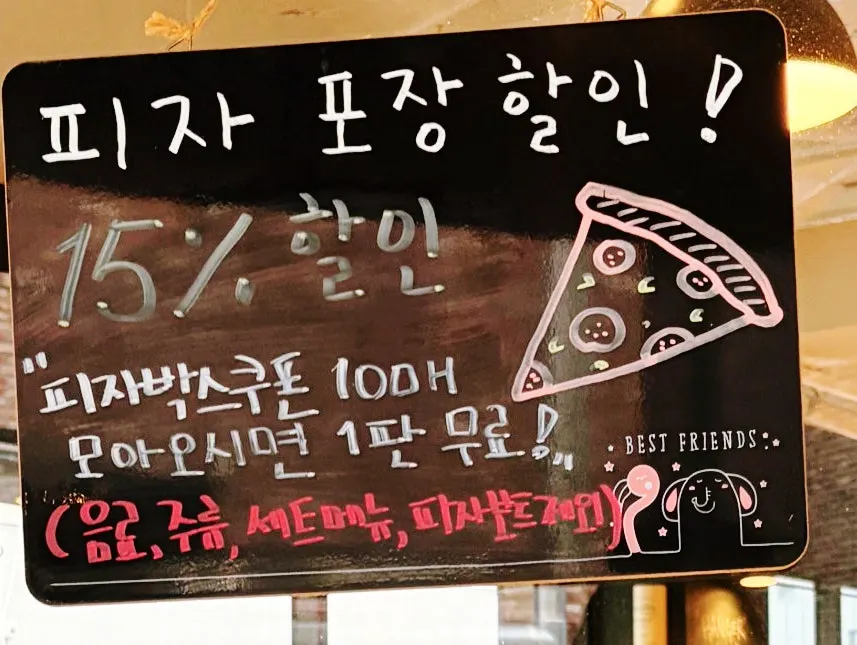 피자 포장 할인!
15% 할인
"피자박스쿠폰 10매
모아오시면 1판 무료!"
(음료, 주류, 세트메뉴, 피자보트제외)
BEST FRIENDS